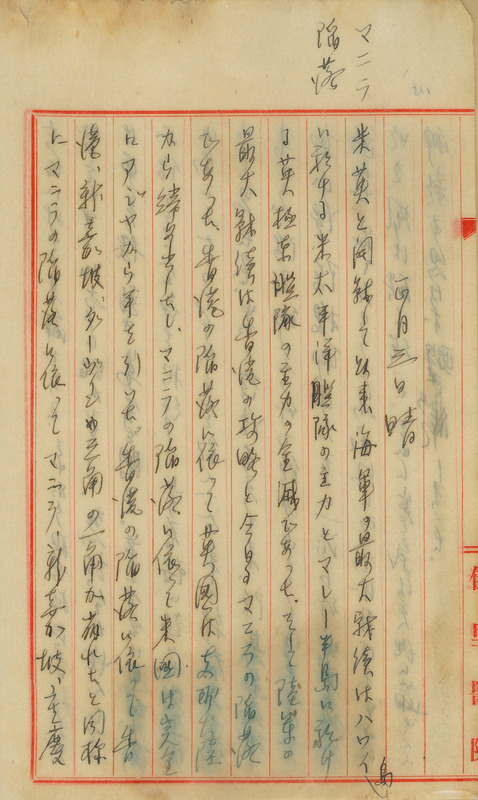 マニラ
陥落
正月三日 晴
米英と開戦して以来海軍の最大戦績はハワイ島
に於ける米太平洋艦隊の主力とマレー半島に於け
る英極東艦隊の主力の全滅であった。そして陸軍の
最大戦績は香港の攻略と今日のマニラの陥落
であらう。香港の陥落に依って英国は支那大陸
から締め出され、マニラの陥落に依って米国は完全
にアジヤから手を引いた。香港の陥落に依って香
港、新嘉坡、の三角の一角が崩れたと同様
にマニラの陥落に依ってマニラ、新嘉坡、重慶